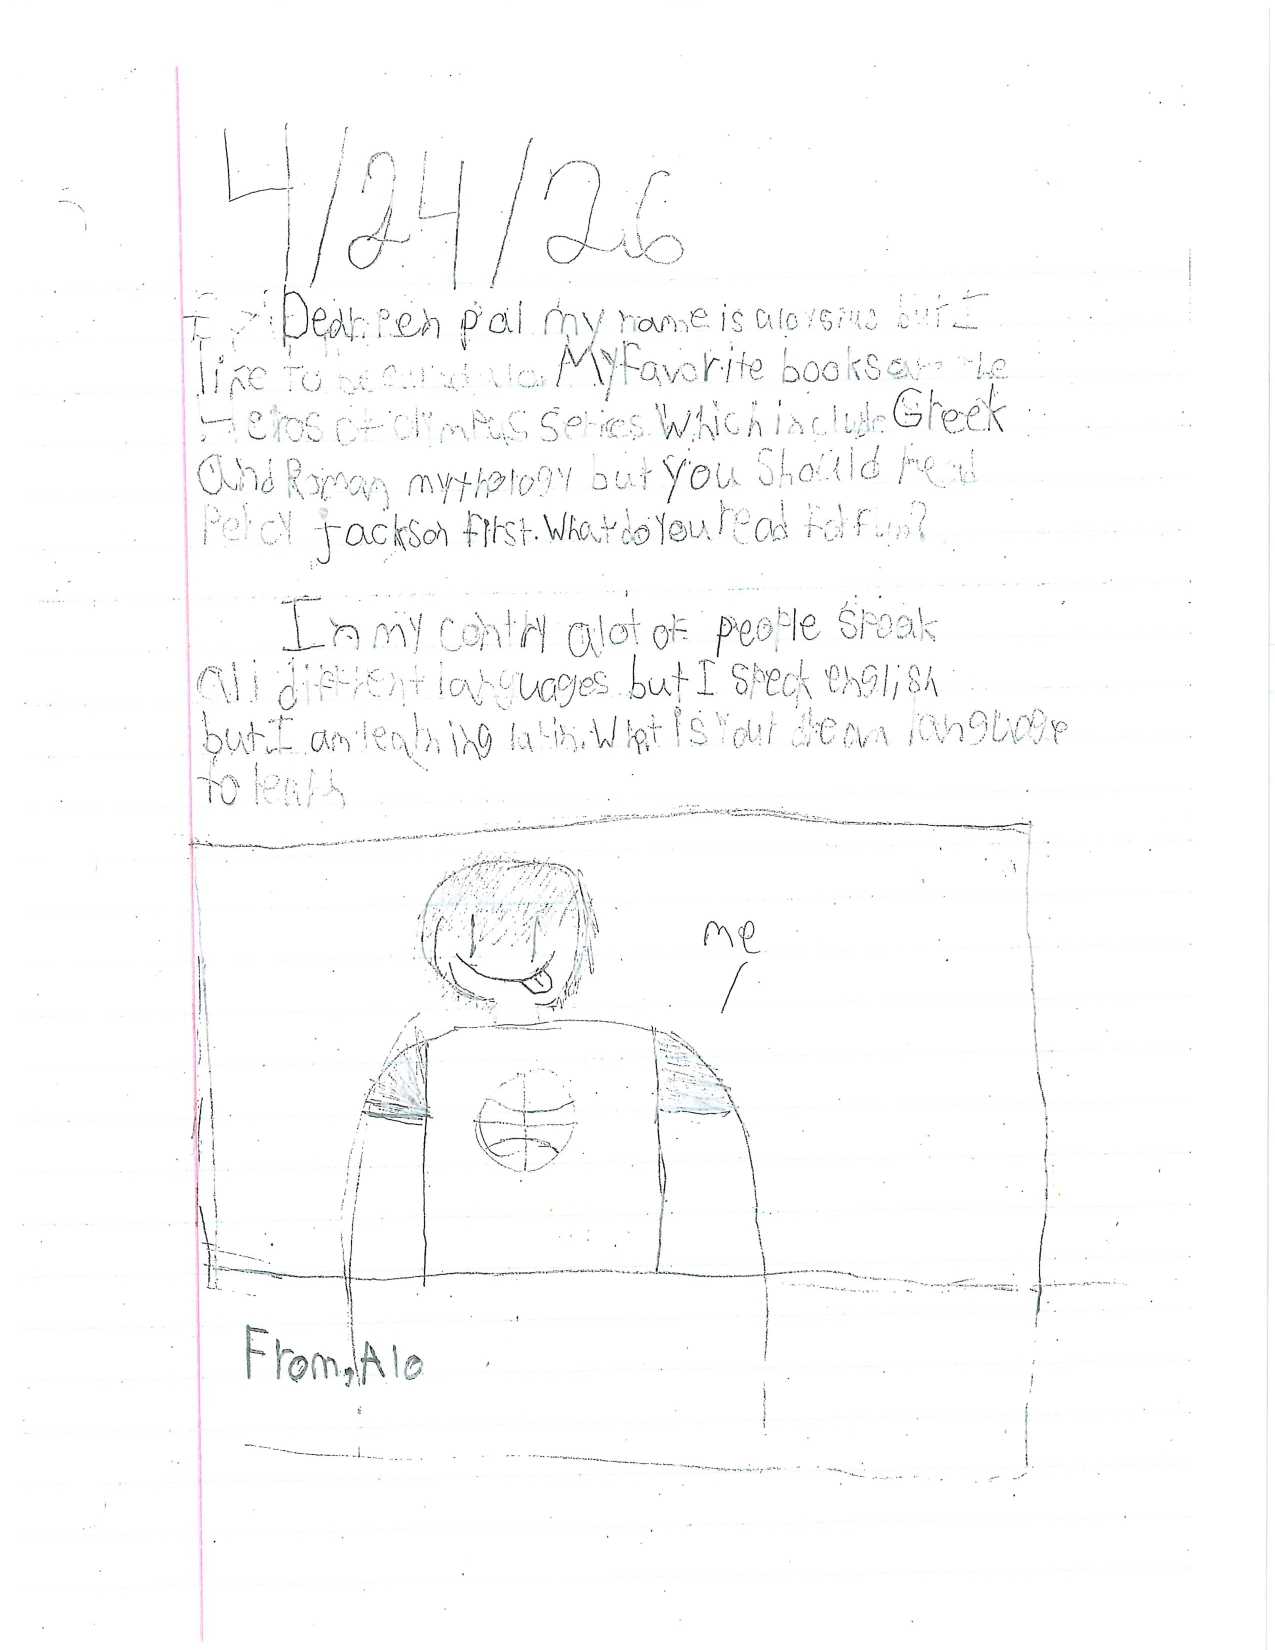 4/24/26
Dear Pen pal my name is aloysius but I
like to be called alo. My Favorite books are the
Heros of olympus series. Which include Greek
and Roman mythology but you Should read
Percy jackson first. What do you read for fun?
In my contry alot of people speak
all diffrent languages but I speck english
but I am learning latin. What is Your dream language
to learn
me
From, Alo